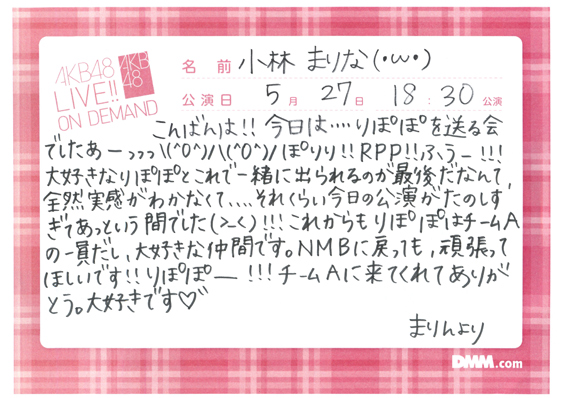 AKB48
LIVE!!
ON DEMAND
AKB
48
名前 小林 まりな(・ω・)
公演日 5月 27日 18:30 公演
こんばんは!! 今日は‥‥りぽぽを送る会
でしたあーっっっ\(^O^)/\(^O^)/ぽりり!!RPP!!ふぅー!!!
大好きなりぽぽとこれで一緒に出られるのが最後だなんて、
全然実感がわかなくて、...それくらい今日の公演がたのしす
ぎてあっという間でした(>_<)!!!これからもりぽぽはチームA
の一員だし、大好きな仲間です。NMBに戻っても、頑張って
ほしいです!!りぽぽー!!!チームAに来てくれてありが
とう。大好きです♡
まりんより
DMM.com